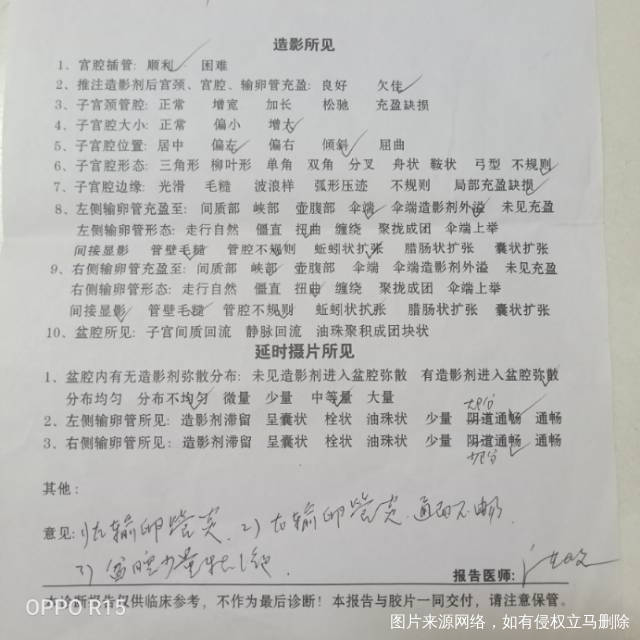 造影所见
1、宫腔插管: 顺利 困难
2、推注造影剂后宫颈、宫腔、输卵管充盈: 良好 欠佳
3、子宫颈管腔: 正常 增宽 加长 松驰 充盈缺损
4、子宫腔大小: 正常 偏小 增大
5、子宫腔位置: 居中 偏左 偏右 倾斜 屈曲
6、子宫腔形态: 三角形 柳叶形 单角 双角 分叉 舟状 鞍状 弓型 不规则
7、子宫腔边缘: 光滑 毛糙 波浪样 弧形压迹 不规则 局部充盈缺损
8、左侧输卵管充盈至: 间质部 峡部 壶腹部 伞端 伞端造影剂外溢 未见充盈
左侧输卵管形态: 走行自然 僵直 扭曲 缠绕 聚拢成团 伞端上举
间接显影 管壁毛糙 管腔不规则 蚯蚓状扩张 腊肠状扩张 囊状扩张
9、右侧输卵管充盈至: 间质部 峡部 壶腹部 伞端 伞端造影剂外溢 未见充盈
右侧输卵管形态: 走行自然 僵直 扭曲 缠绕 聚拢成团 伞端上举
间接显影 管壁毛糙 管腔不规则 蚯蚓状扩张 腊肠状扩张 囊状扩张
10、盆腔所见: 子宫间质回流 静脉回流 油珠聚积成团块状
延时摄片所见
1、盆腔内有无造影剂弥散分布: 未见造影剂进入盆腔弥散 有造影剂进入盆腔弥散
分布均匀 分布不均匀 微量 少量 中等量 大量
2、左侧输卵管所见: 造影剂滞留 呈囊状 栓状 油珠状 少量 阴道通畅 通畅
3、右侧输卵管所见: 造影剂滞留 呈囊状 栓状 油珠状 少量 阴道通畅 通畅
其他:
意见: 输卵管炎 2) 右输卵管炎 通而不畅.
3) 盆腔少量
报告医师:
本诊断报告仅供临床参考，不作为最后诊断! 本报告与胶片一同交付，请注意保管。
OPPO R15
图片来源网络，如有侵权立马删除